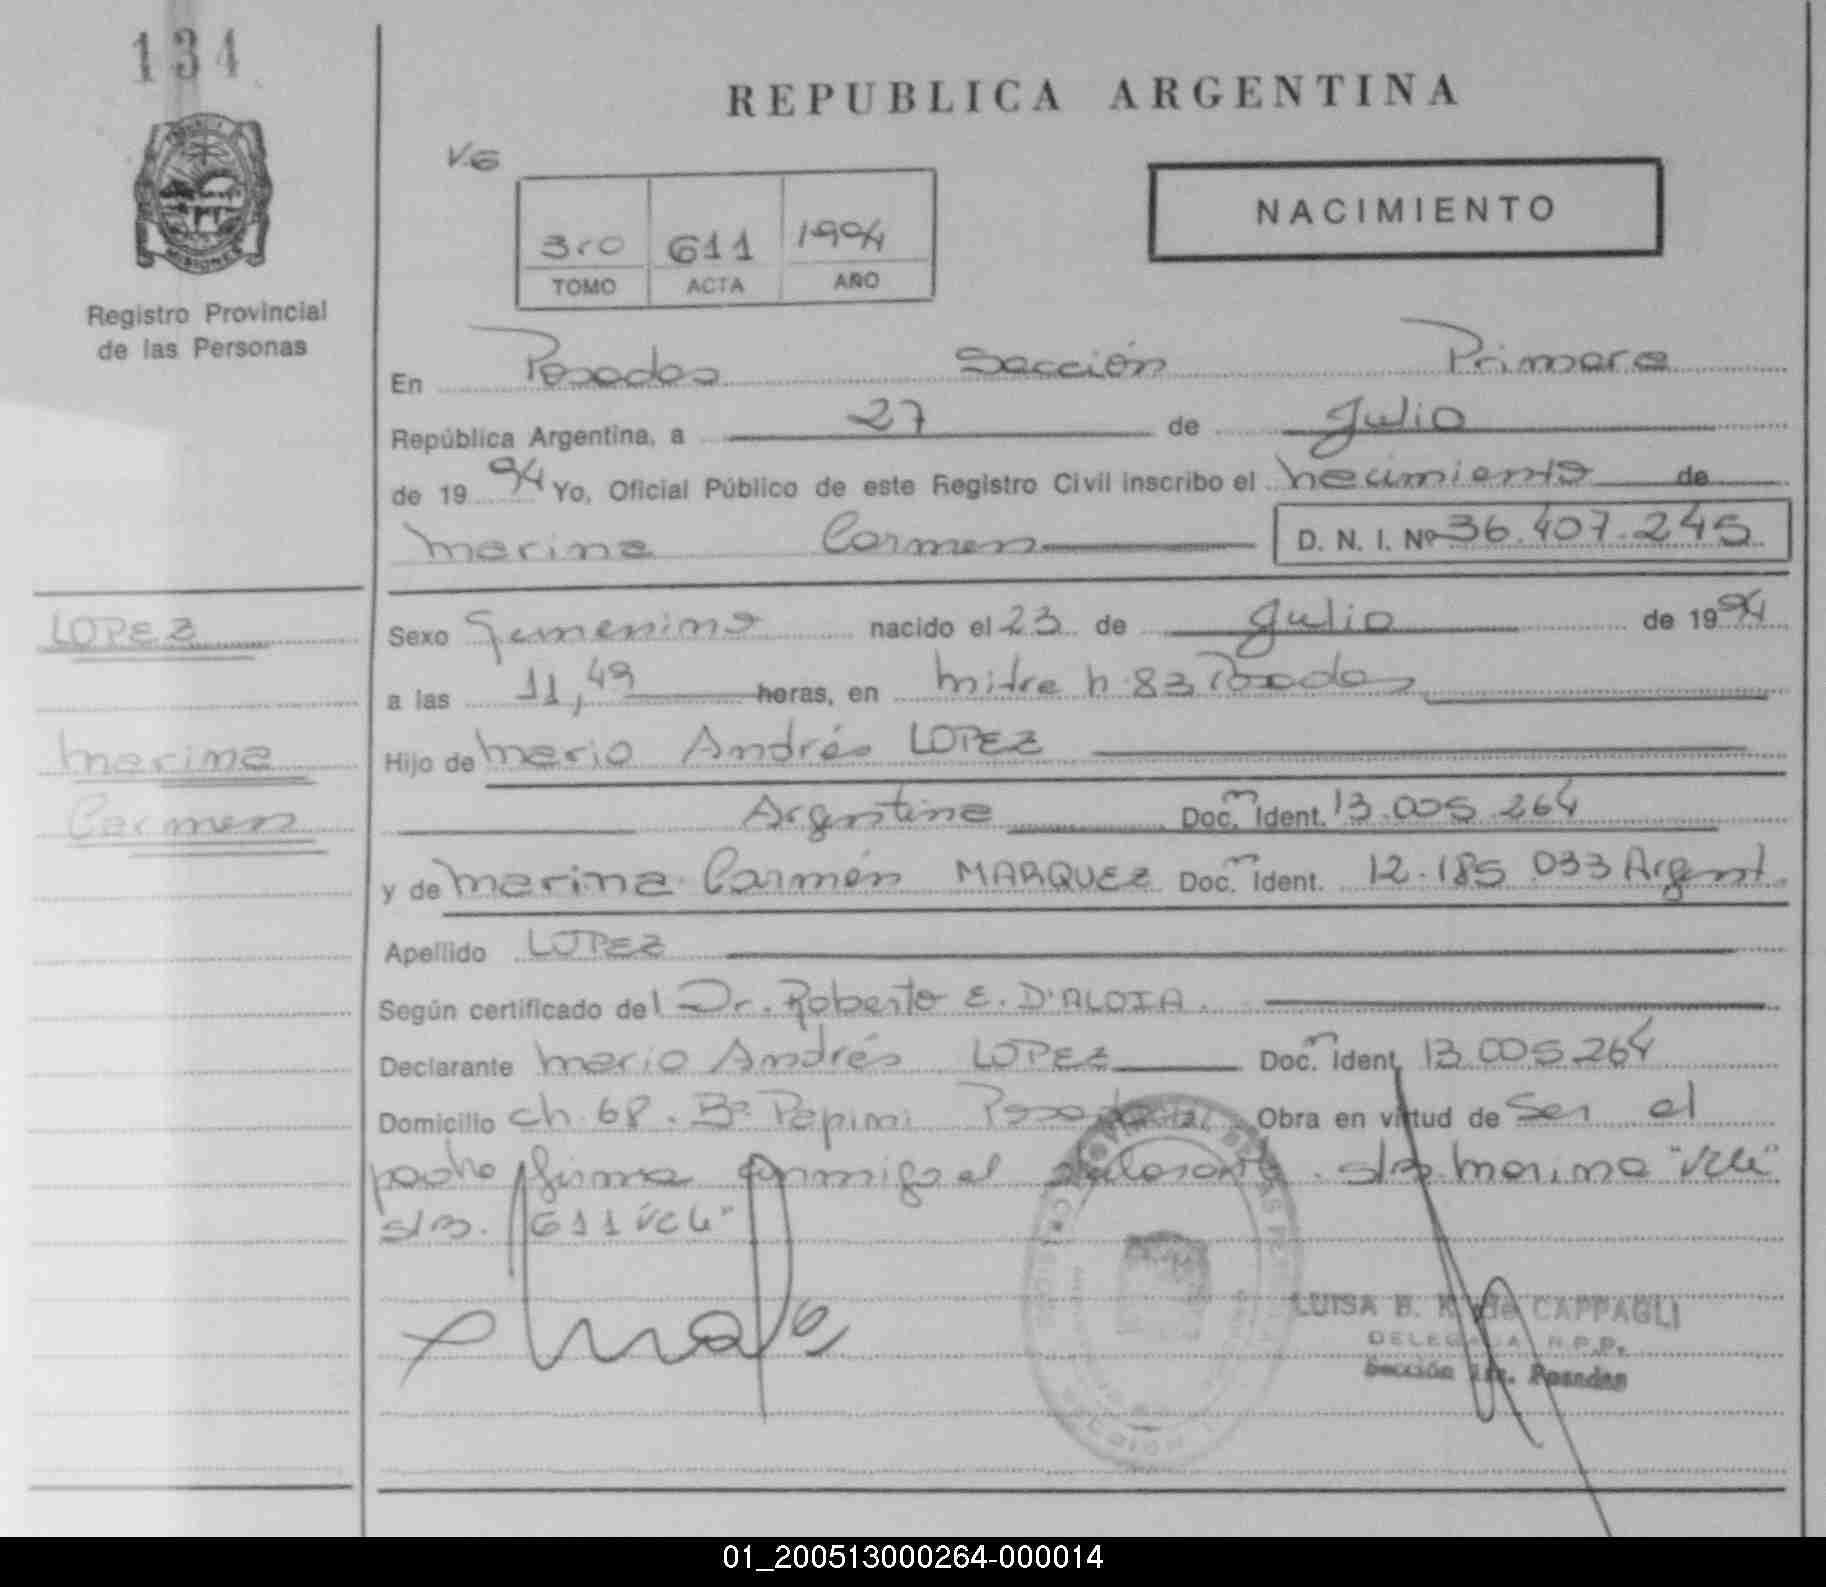 134
REPUBLICA ARGENTINA
V.G
NACIMIENTO
3ro 611 1994
TOMO ACTA AÑO
MISIONES
Registro Provincial
de las Personas
En Posadas Sección Primera
República Argentina, a 27 de Julio
de 1994 Yo, Oficial Público de este Registro Civil inscribo el nacimiento de
Marina Carmen D. N. I. Nº 36.407.245
LOPEZ
Marina
Carmen
Sexo Femenino nacido el 23 de Julio de 1994
a las 11,49 horas, en Mitre n 83 Posadas
Hijo de Mario Andrés LOPEZ
Argentina Doc. Ident. 13.005.264
y de Marina Carmén MARQUEZ Doc. Ident. 12.185.033 Argent.
Apellido LOPEZ
Según certificado del Dr. Roberto E. D'ALOIA.
Declarante Mario Andrés LOPEZ Doc. Ident. 13.005.264
Domicilio ch. 68. Bº Papini Posadas Obra en virtud de ser el
padre firma conmigo el declarante. s/b. Marina "vale"
s/b. 611 "vale"
LUISA B. K. de CAPPAGLI
DELEGADA R.P.P.
Sección 1ra. Posadas
01_200513000264-000014